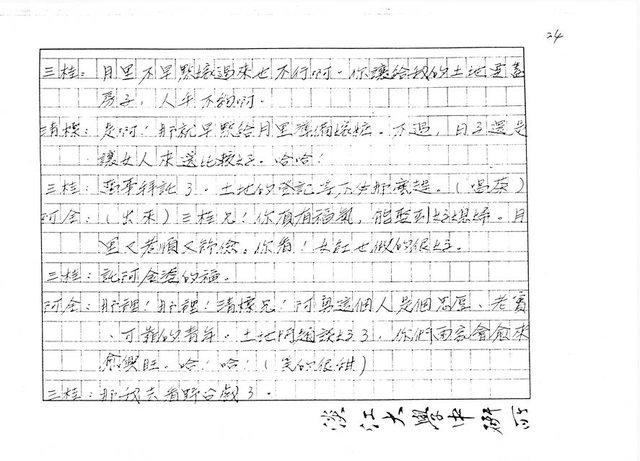 24
三桂：月里不早點嫁過來也不行啊．你讓給我的土地要蓋
房子，人手不夠啊．
清標：是啊！那就早點給月里準備嫁粧．不過，日子還是
讓女人來選比較好．哈哈！
三桂：萬事拜託了．土地的登記等下先那麼趕．（喝茶）
阿金：（出來）三桂兄！你真有福氣，能娶到好媳婦．月
里又孝順又節儉．你看！女紅也做的很好．
三桂：託阿金嬸的福．
阿金：那裡！那裡！清標兄！阿昌這個人是個忠厚、老實
、可靠的青年．土地問題談好了，你們兩家會愈來
愈興旺．哈！哈！（笑的很甜）
三桂：那我去看野台戲了．
淡江大學中研所